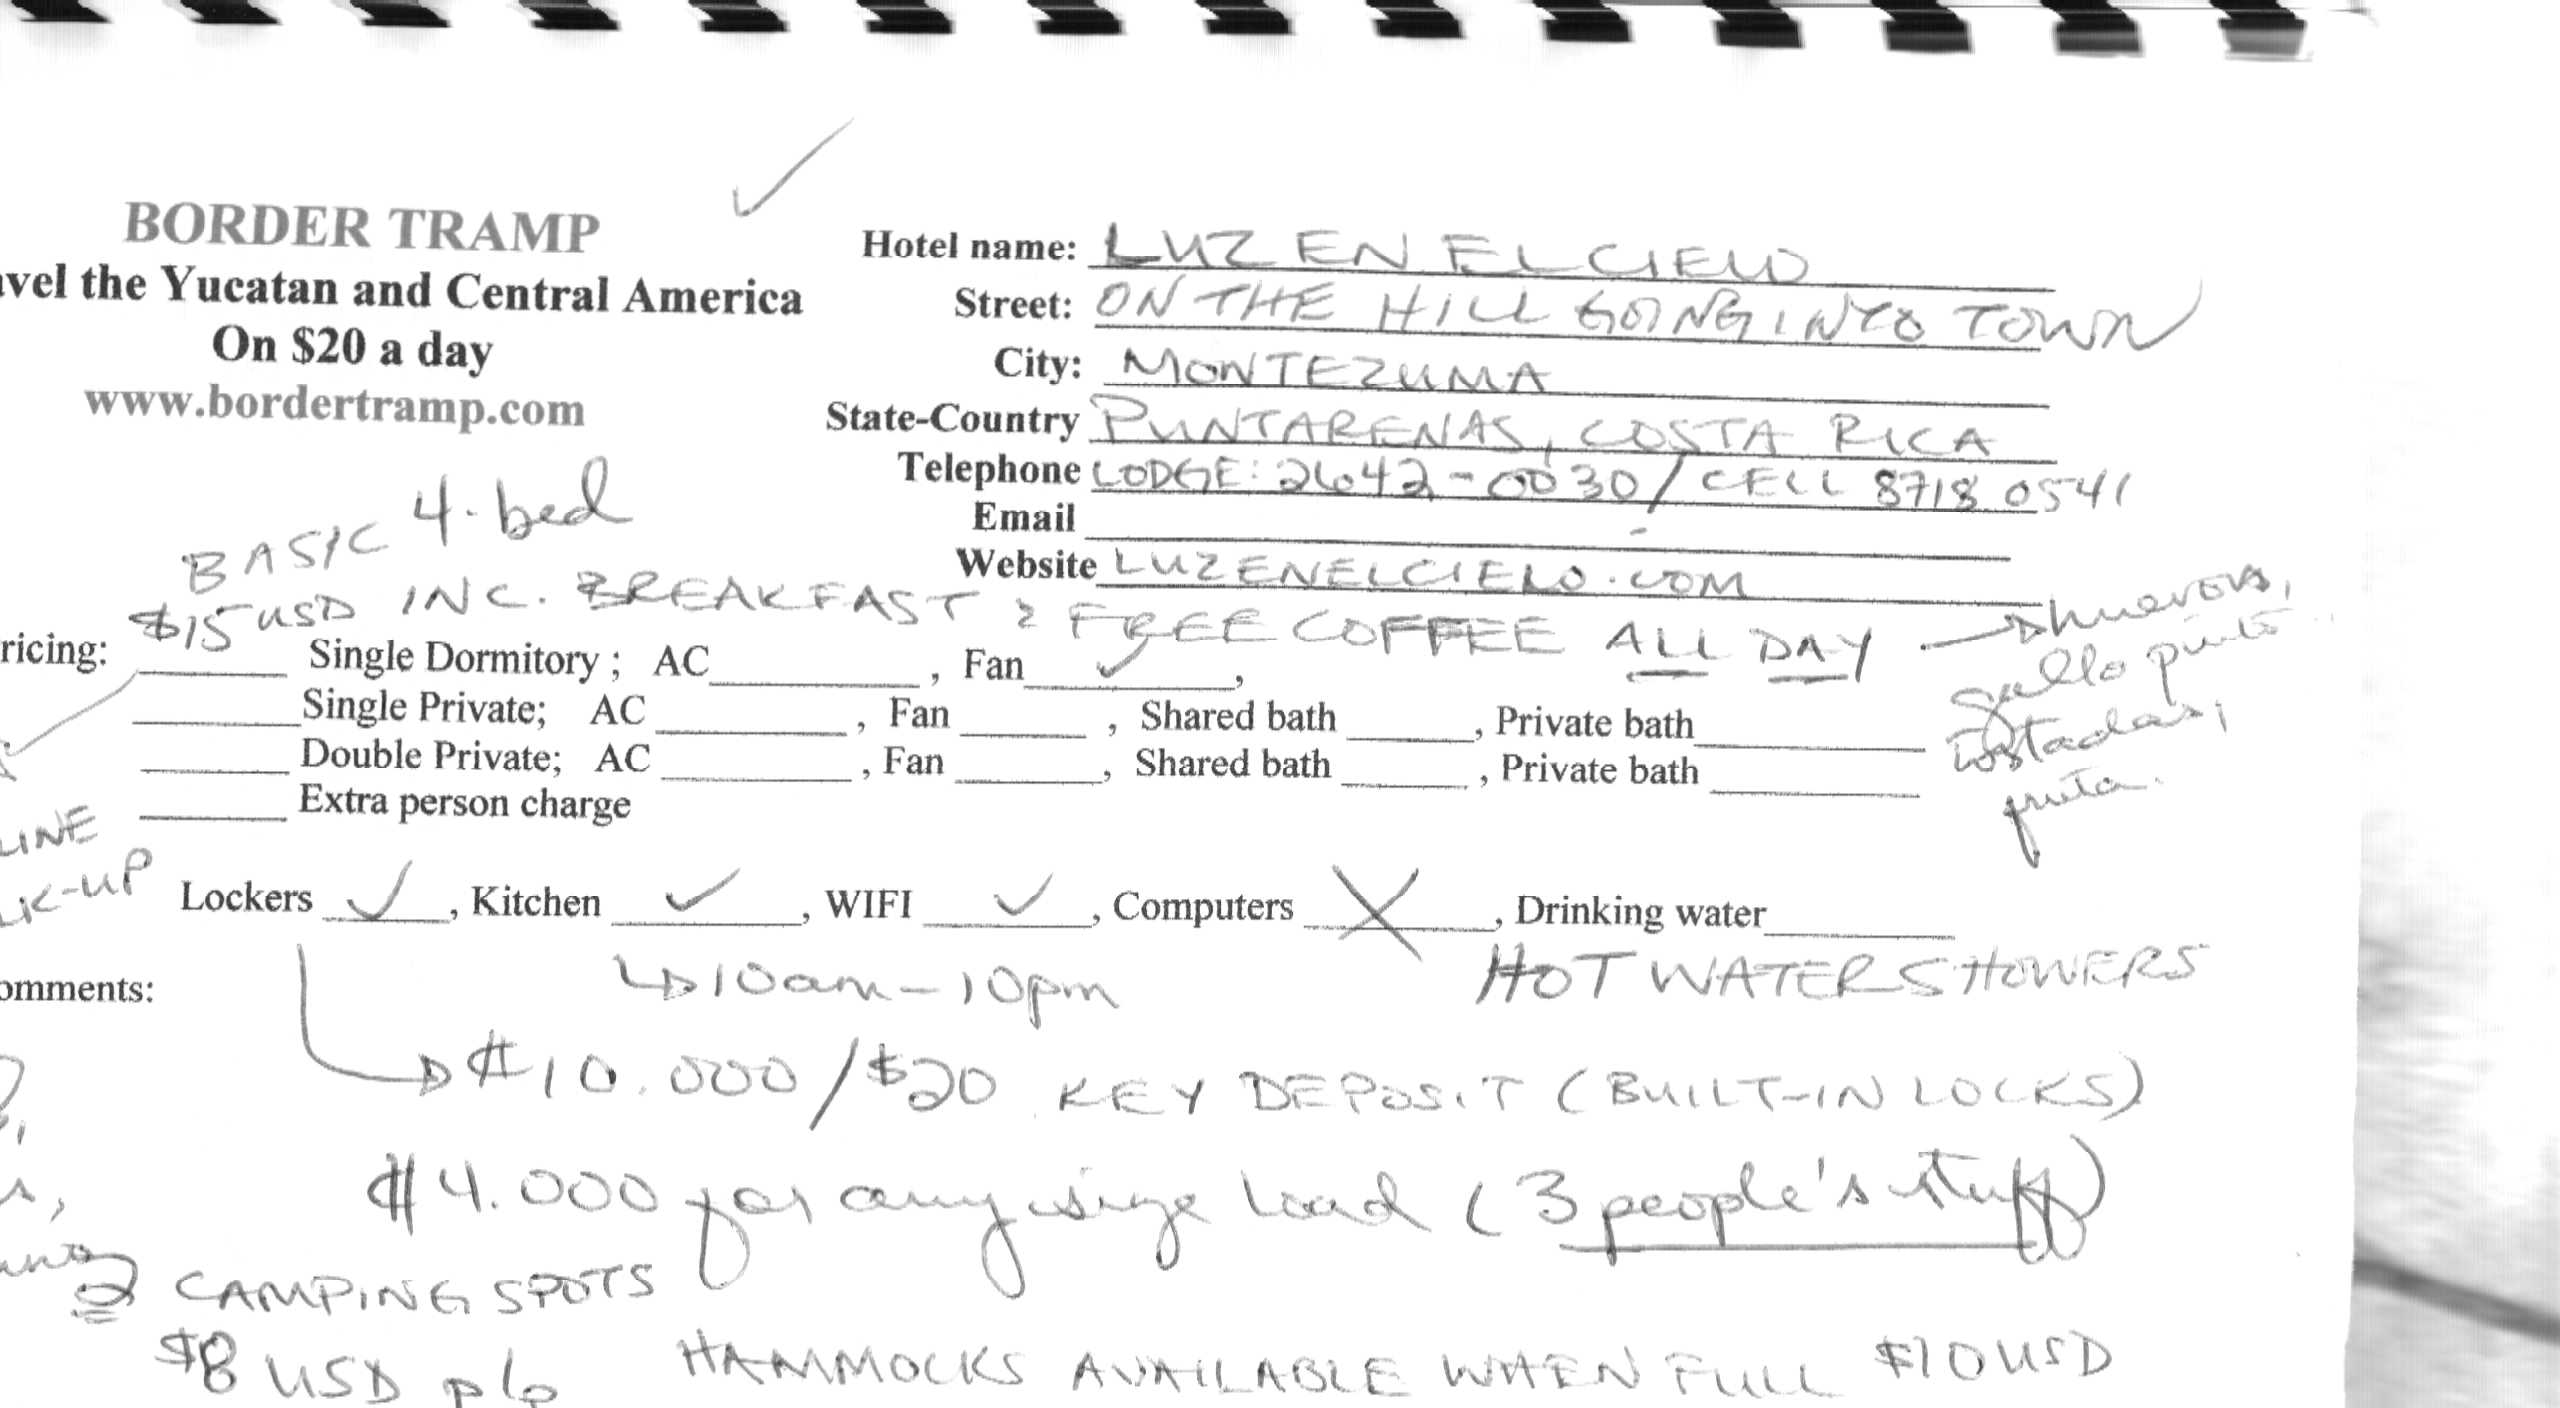 BORDER TRAMP
avel the Yucatan and Central America
On $20 a day
www.bordertramp.com
Hotel name: LUZ EN EL CIELO
Street: ON THE HILL GOING INTO TOWN
City: MONTEZUMA
State-Country PUNTARENAS, COSTA RICA
Telephone LODGE: 2642-0030 / CELL 8718 0541
Email
Website LUZENELCIELO.COM
BASIC 4-bed
$15 USD INC. BREAKFAST & FREE COFFEE ALL DAY → huevos,
gallo pinto
tostadas,
fruta.
ricing: Single Dormitory ; AC , Fan ✓ ,
Single Private; AC , Fan , Shared bath , Private bath
Double Private; AC , Fan , Shared bath , Private bath
Extra person charge
LINE
CK-UP
Lockers ✓, Kitchen ✓, WIFI ✓, Computers X, Drinking water
omments:
10am-10pm
HOT WATER SHOWERS
₡10.000/$20 KEY DEPOSIT (BUILT-IN LOCKS)
₡4.000 for any size load (3 people's stuff)
2 CAMPING SPOTS
$8 USD p/p
HAMMOCKS AVAILABLE WHEN FULL $10 USD